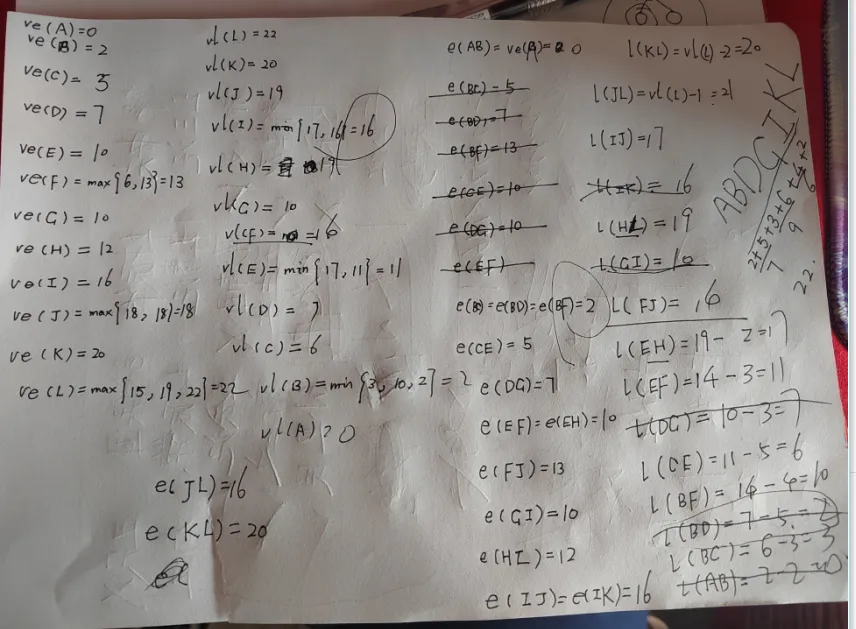 ve(A)=0
ve(B)=2
ve(C)=5
ve(D)=7
ve(E)=10
ve(F)=max{6,13}=13
ve(G)=10
ve(H)=12
ve(I)=16
ve(J)=max{18,18}=18
ve(K)=20
ve(L)=max{15,19,22}=22
vl(L)=22
vl(K)=20
vl(J)=19
vl(I)=min{17,16}=16
vl(H)=19
vl(G)=10
vl(F)=16
vl(E)=min{17,11}=11
vl(D)=7
vl(C)=6
vl(B)=min{3,10,2}=2
vl(A)=0
e(JL)=16
e(KL)=20
e(AB)=ve(A)=0
e(BC)=5
e(BD)=7
e(BF)=13
e(CE)=10
e(DG)=10
e(EF)
e(B)=e(BD)=e(BF)=2
e(CE)=5
e(DG)=7
e(EF)=e(EH)=10
e(FJ)=13
e(GI)=10
e(HL)=12
e(IJ)=e(IK)=16
l(KL)=vl(L)-2=20
l(JL)=vl(L)-1=21
l(IJ)=17
l(IK)=16
l(HL)=19
l(GI)=10
l(FJ)=16
l(EH)=19-2=17
l(EF)=14-3=11
l(DG)=10-3=7
l(CE)=11-5=6
l(BF)=14-4=10
l(BD)=7-5=2
l(BC)=6-3=3
l(AB)=2-2=0
ABDGIKL
2+5+3+6+4+2
7
9
22.